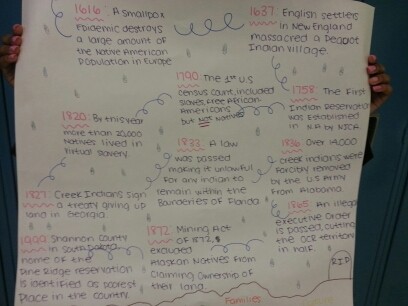 1616 A Smallpox
Epidemic destroys
a large amount of
the Native American
Population in Europe
1637: English settlers
in New England
massacred a Peqout
Indian village.
1790 The 1st U.S
census count, included
slaves, free African
Americans
but Not Natives
1758 The First
Indian Reservation
was Established
in N.A by NJCA.
1820: By this year
more than 20,000
Natives lived in
virtual slavery.
1833: A law
was passed
making it unlawful
for any Indian to
remain within the
Bounderies of Florida
1836 Over 14,000
creek Indians were
forcibly removed
by the U.S Army
From Alabama.
1827: Creek Indians sign
a treaty giving up
land in Georgia.
1865: An illegal
executive Order
is passed, cutting
the territory
in half.
1999 Shannon county
in South Dakota
home of the
Pine Ridge reservation
is identified as poorest
Place in the country.
1872 Mining Act
of 1872,
excluded
Alaskan Natives from
Claiming ownership of
their land.
R.I.P
Families